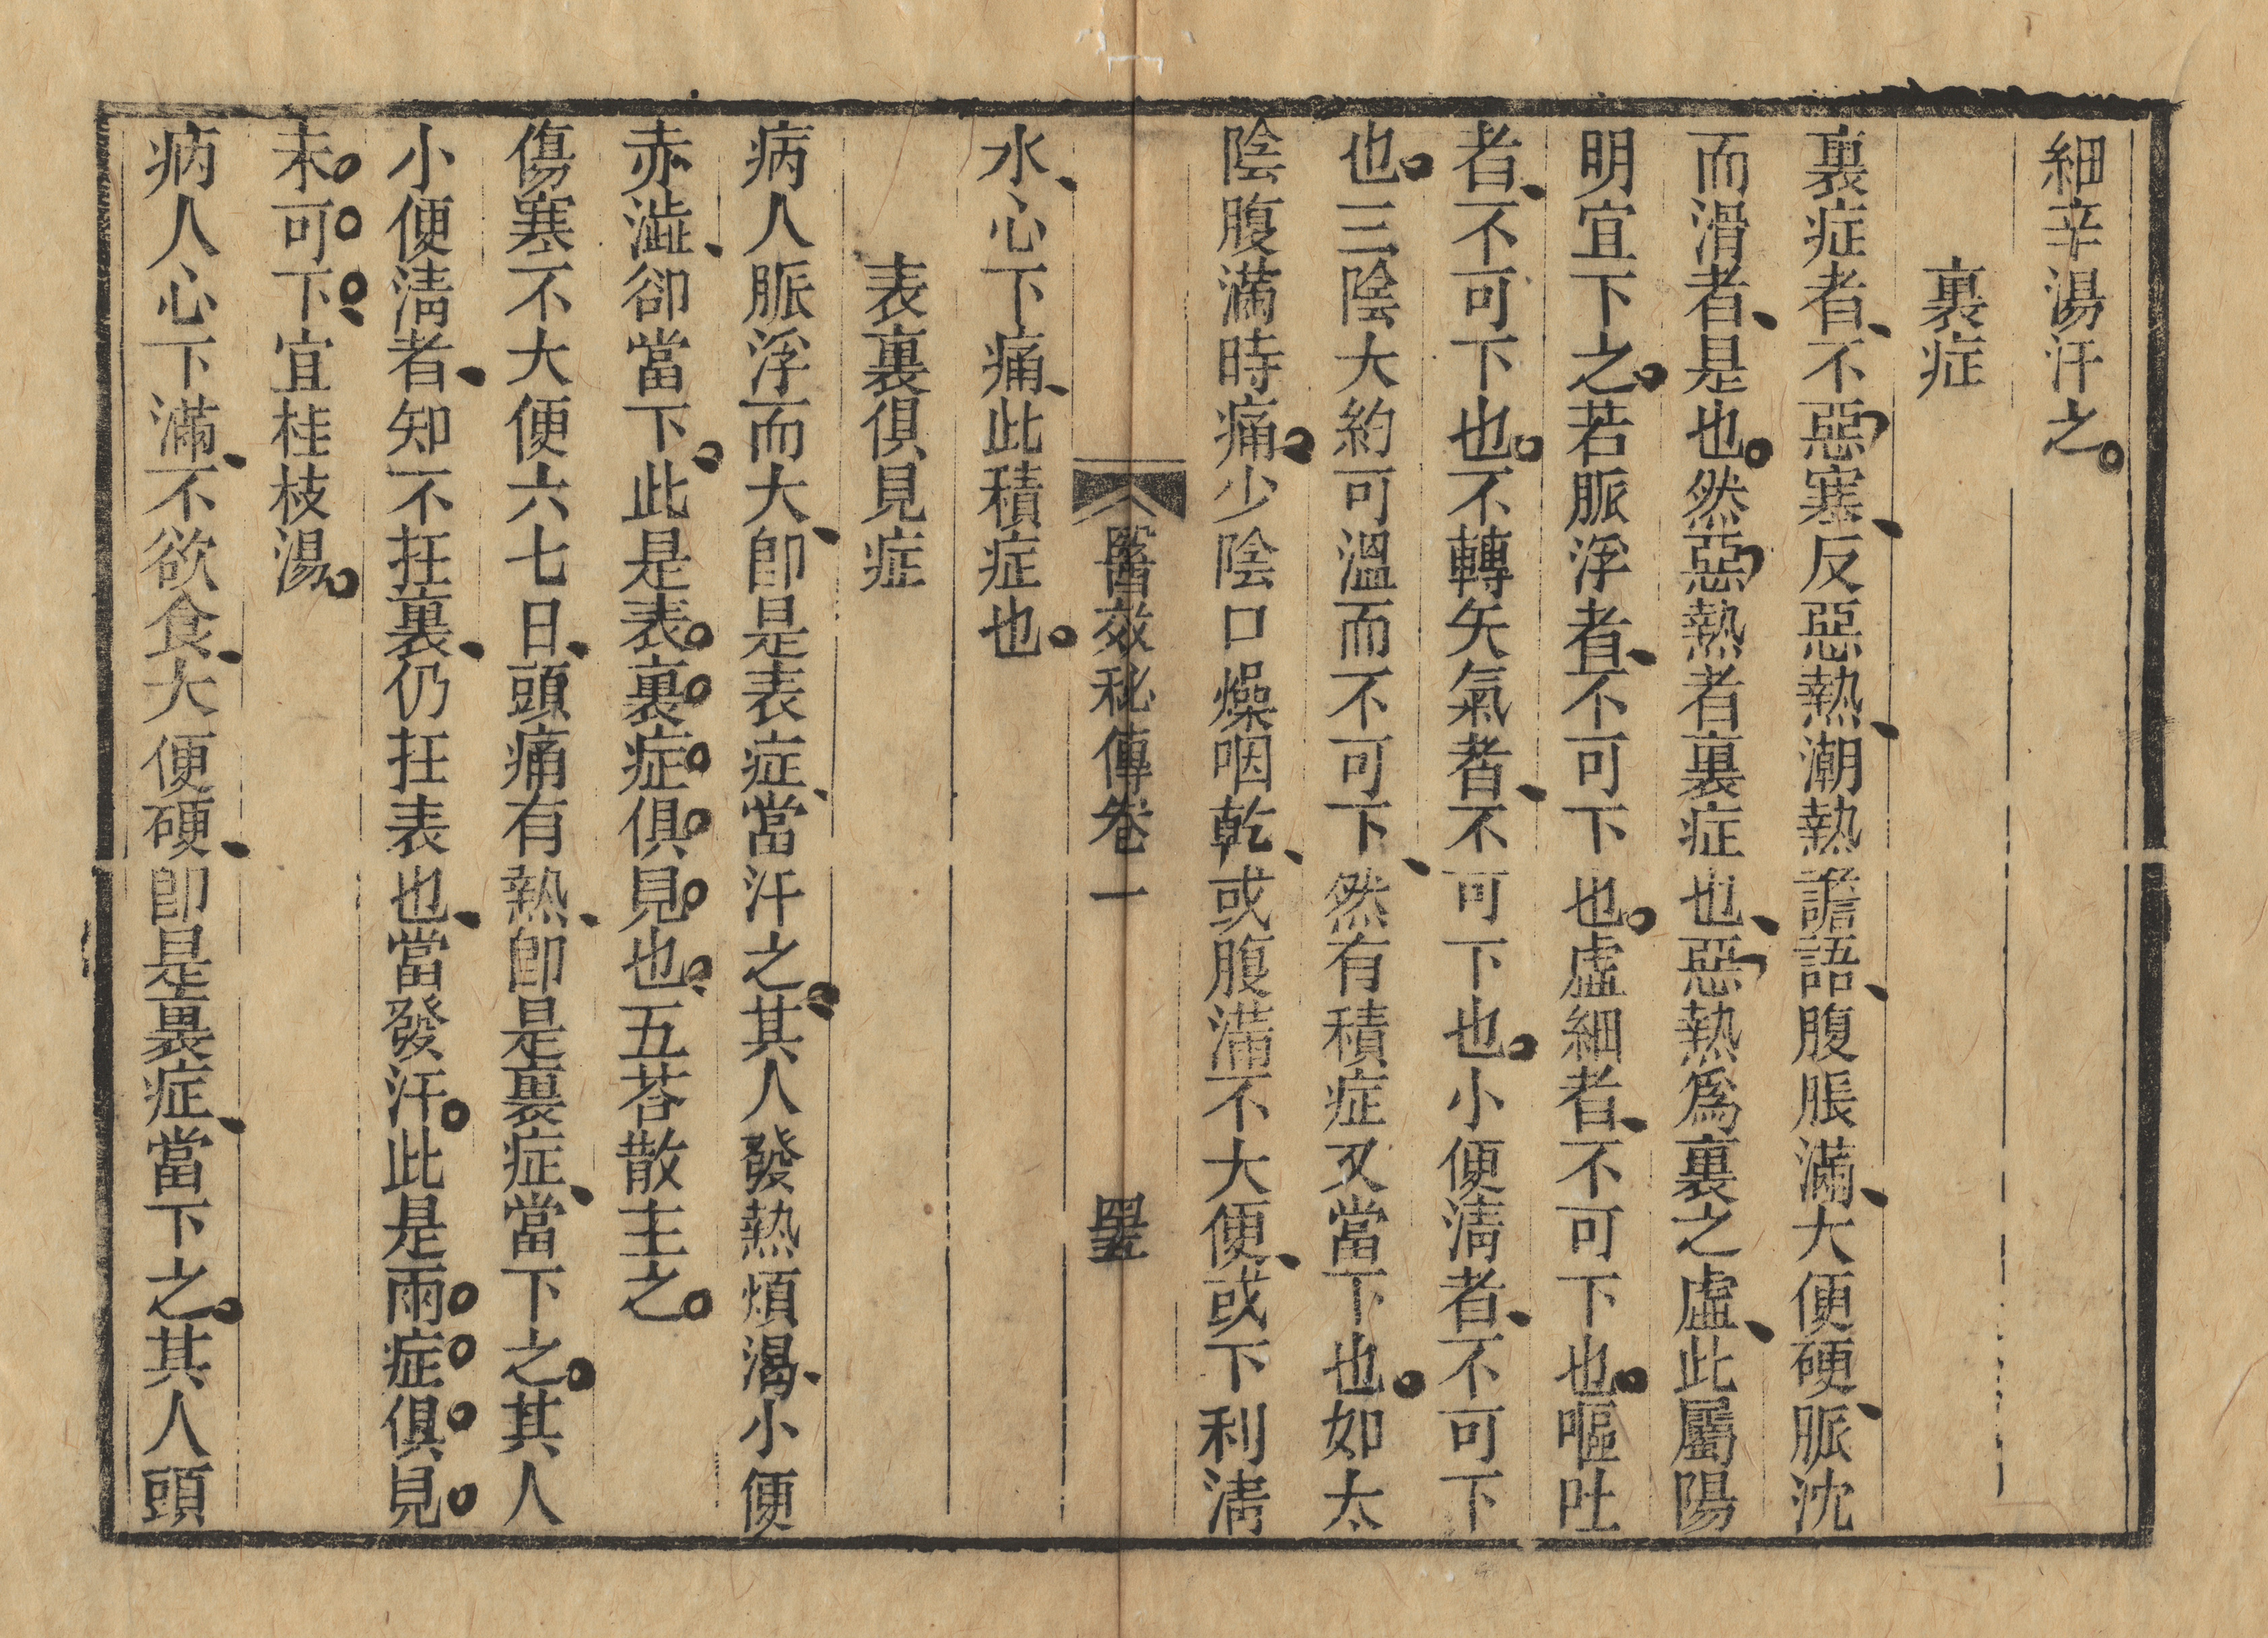 細辛湯汗之。
裏症
裏症者、不惡寒、反惡熱、潮熱譫語、腹脹滿、大便硬、脈沈
而滑者、是也。然惡熱者裏症也、惡熱爲裏之虛、此屬陽
明宜下之。若脈浮者、不可下也。虛細者、不可下也。嘔吐
者、不可下也。不轉矢氣者、不可下也。小便淸者、不可下
也。三陰大約可溫而不可下、然有積症又當下也。如太
陰腹滿時痛。少陰口燥咽乾、或腹滿不大便、或下利淸
醫效秘傳卷一 罣
水、心下痛、此積症也。
表裏俱見症
病人脈浮而大、卽是表症、當汗之。其人發熱煩渴、小便
赤澁、卻當下。此是表裏症俱見也、五苓散主之。
傷寒不大便六七日、頭痛有熱、卽是裏症、當下之。其人
小便淸者、知不在裏、仍在表也、當發汗。此是兩症俱見
未可下、宜桂枝湯。
病人心下滿、不欲食、大便硬、卽是裏症、當下之。其人頭